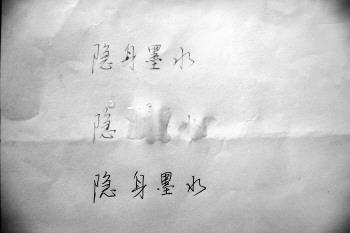 隐身墨水
隐
隐身墨水